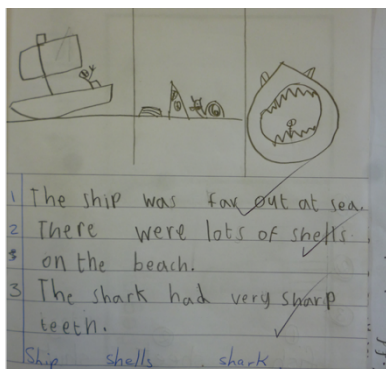 1 The ship was far out at sea.
2 There were lots of shells
on the beach.
3 The shark had very sharp
teeth.
Ship shells shark